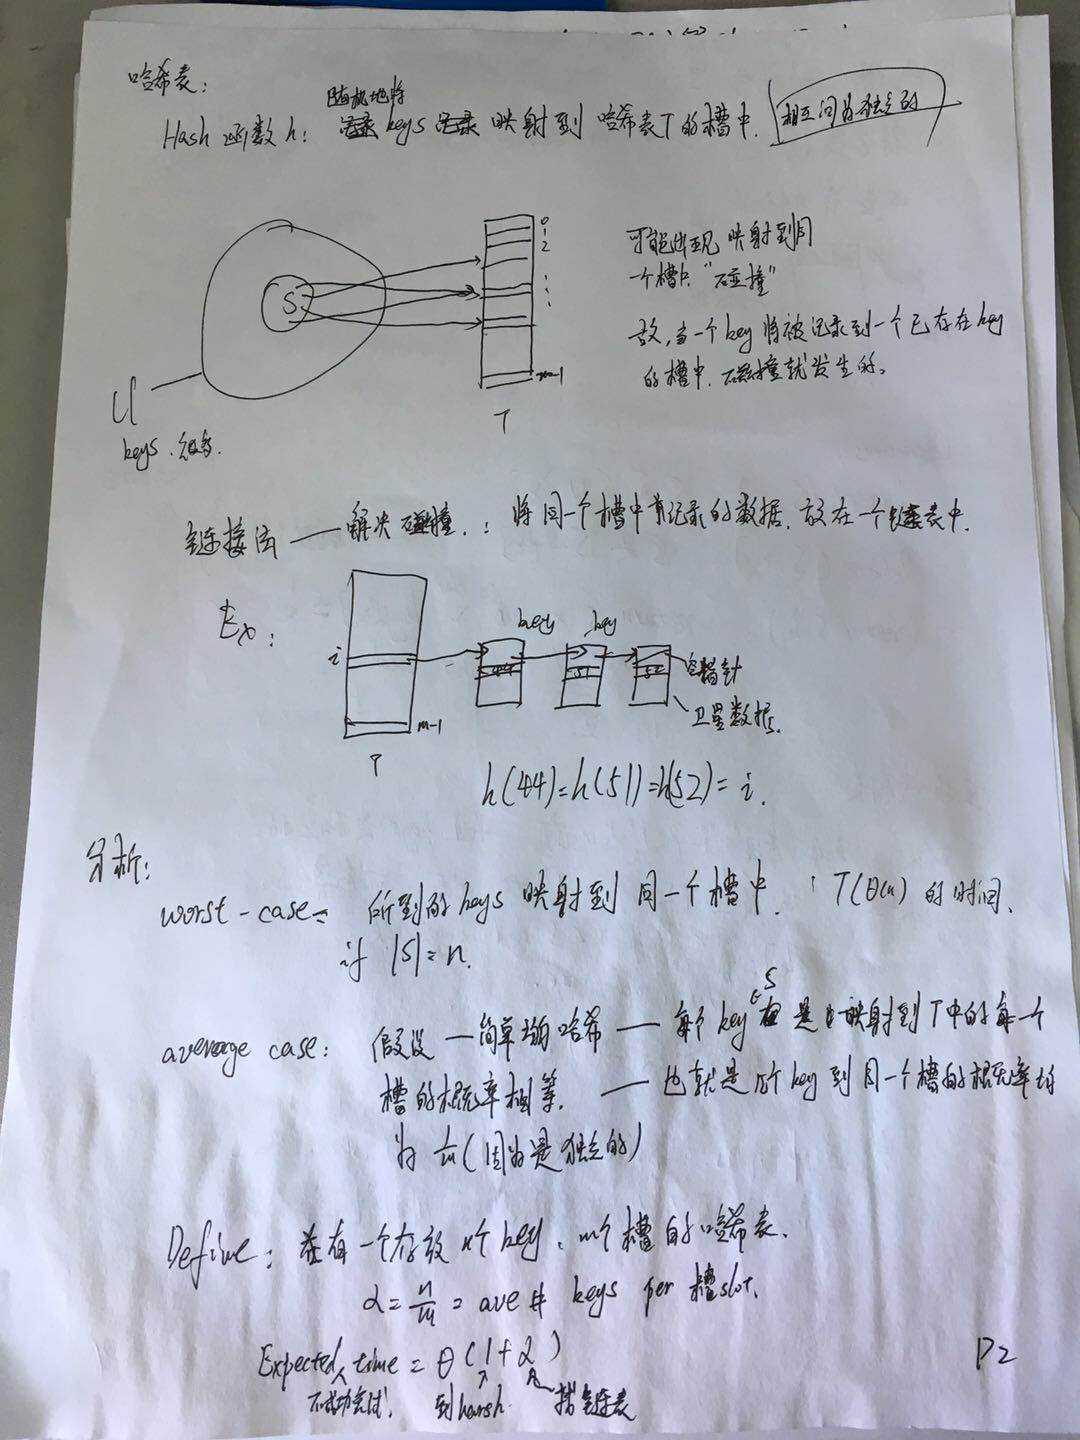 哈希表：
随机地将
Hash 函数 h： keys 映射到 哈希表T的槽中. 相互间为独立的
0
1
2
S
可能出现 映射到同
一个槽中. "碰撞"
故, 当一个key将被记录到一个已存在key
的槽中. 碰撞就发生的。
m-1
U
T
keys.
链接法 —— 解决碰撞. ： 将同一个槽中有记录的数据. 放在一个链表中.
Ex：
key key
i
44 51 52 空指针
m-1 卫星数据.
T
h(44)=h(51)=h(52)= i.
分析：
worst-case： 所到的keys 映射到 同一个槽中. T(θ(n)) 的时间.
if |S|=n.
average case： 假设 — 简单均匀哈希 — 每个 key ∈S 是 映射到T中的每一个
槽的概率相等. —— 也就是 两个key到同一个槽的概率均
为 1/m (因为是独立的)
Define： 在有一个存放 n个 key, m个槽的哈希表.
α = n/m = ave # keys per 槽slot.
Expected time = θ(1+α)
不成功 到harsh. 找链表
P2